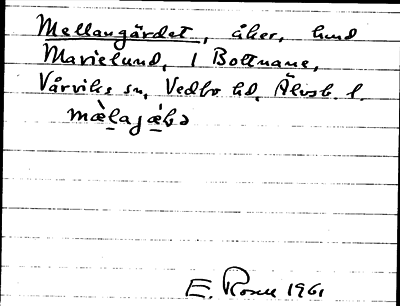 Mellangärdet, åker, hmd
Marielund, 1 Bottnane,
Vårviks sn, Vedbo hd, Älvsb. l.
mæ̀lajæ̀ḷə
E. Rosell 1961